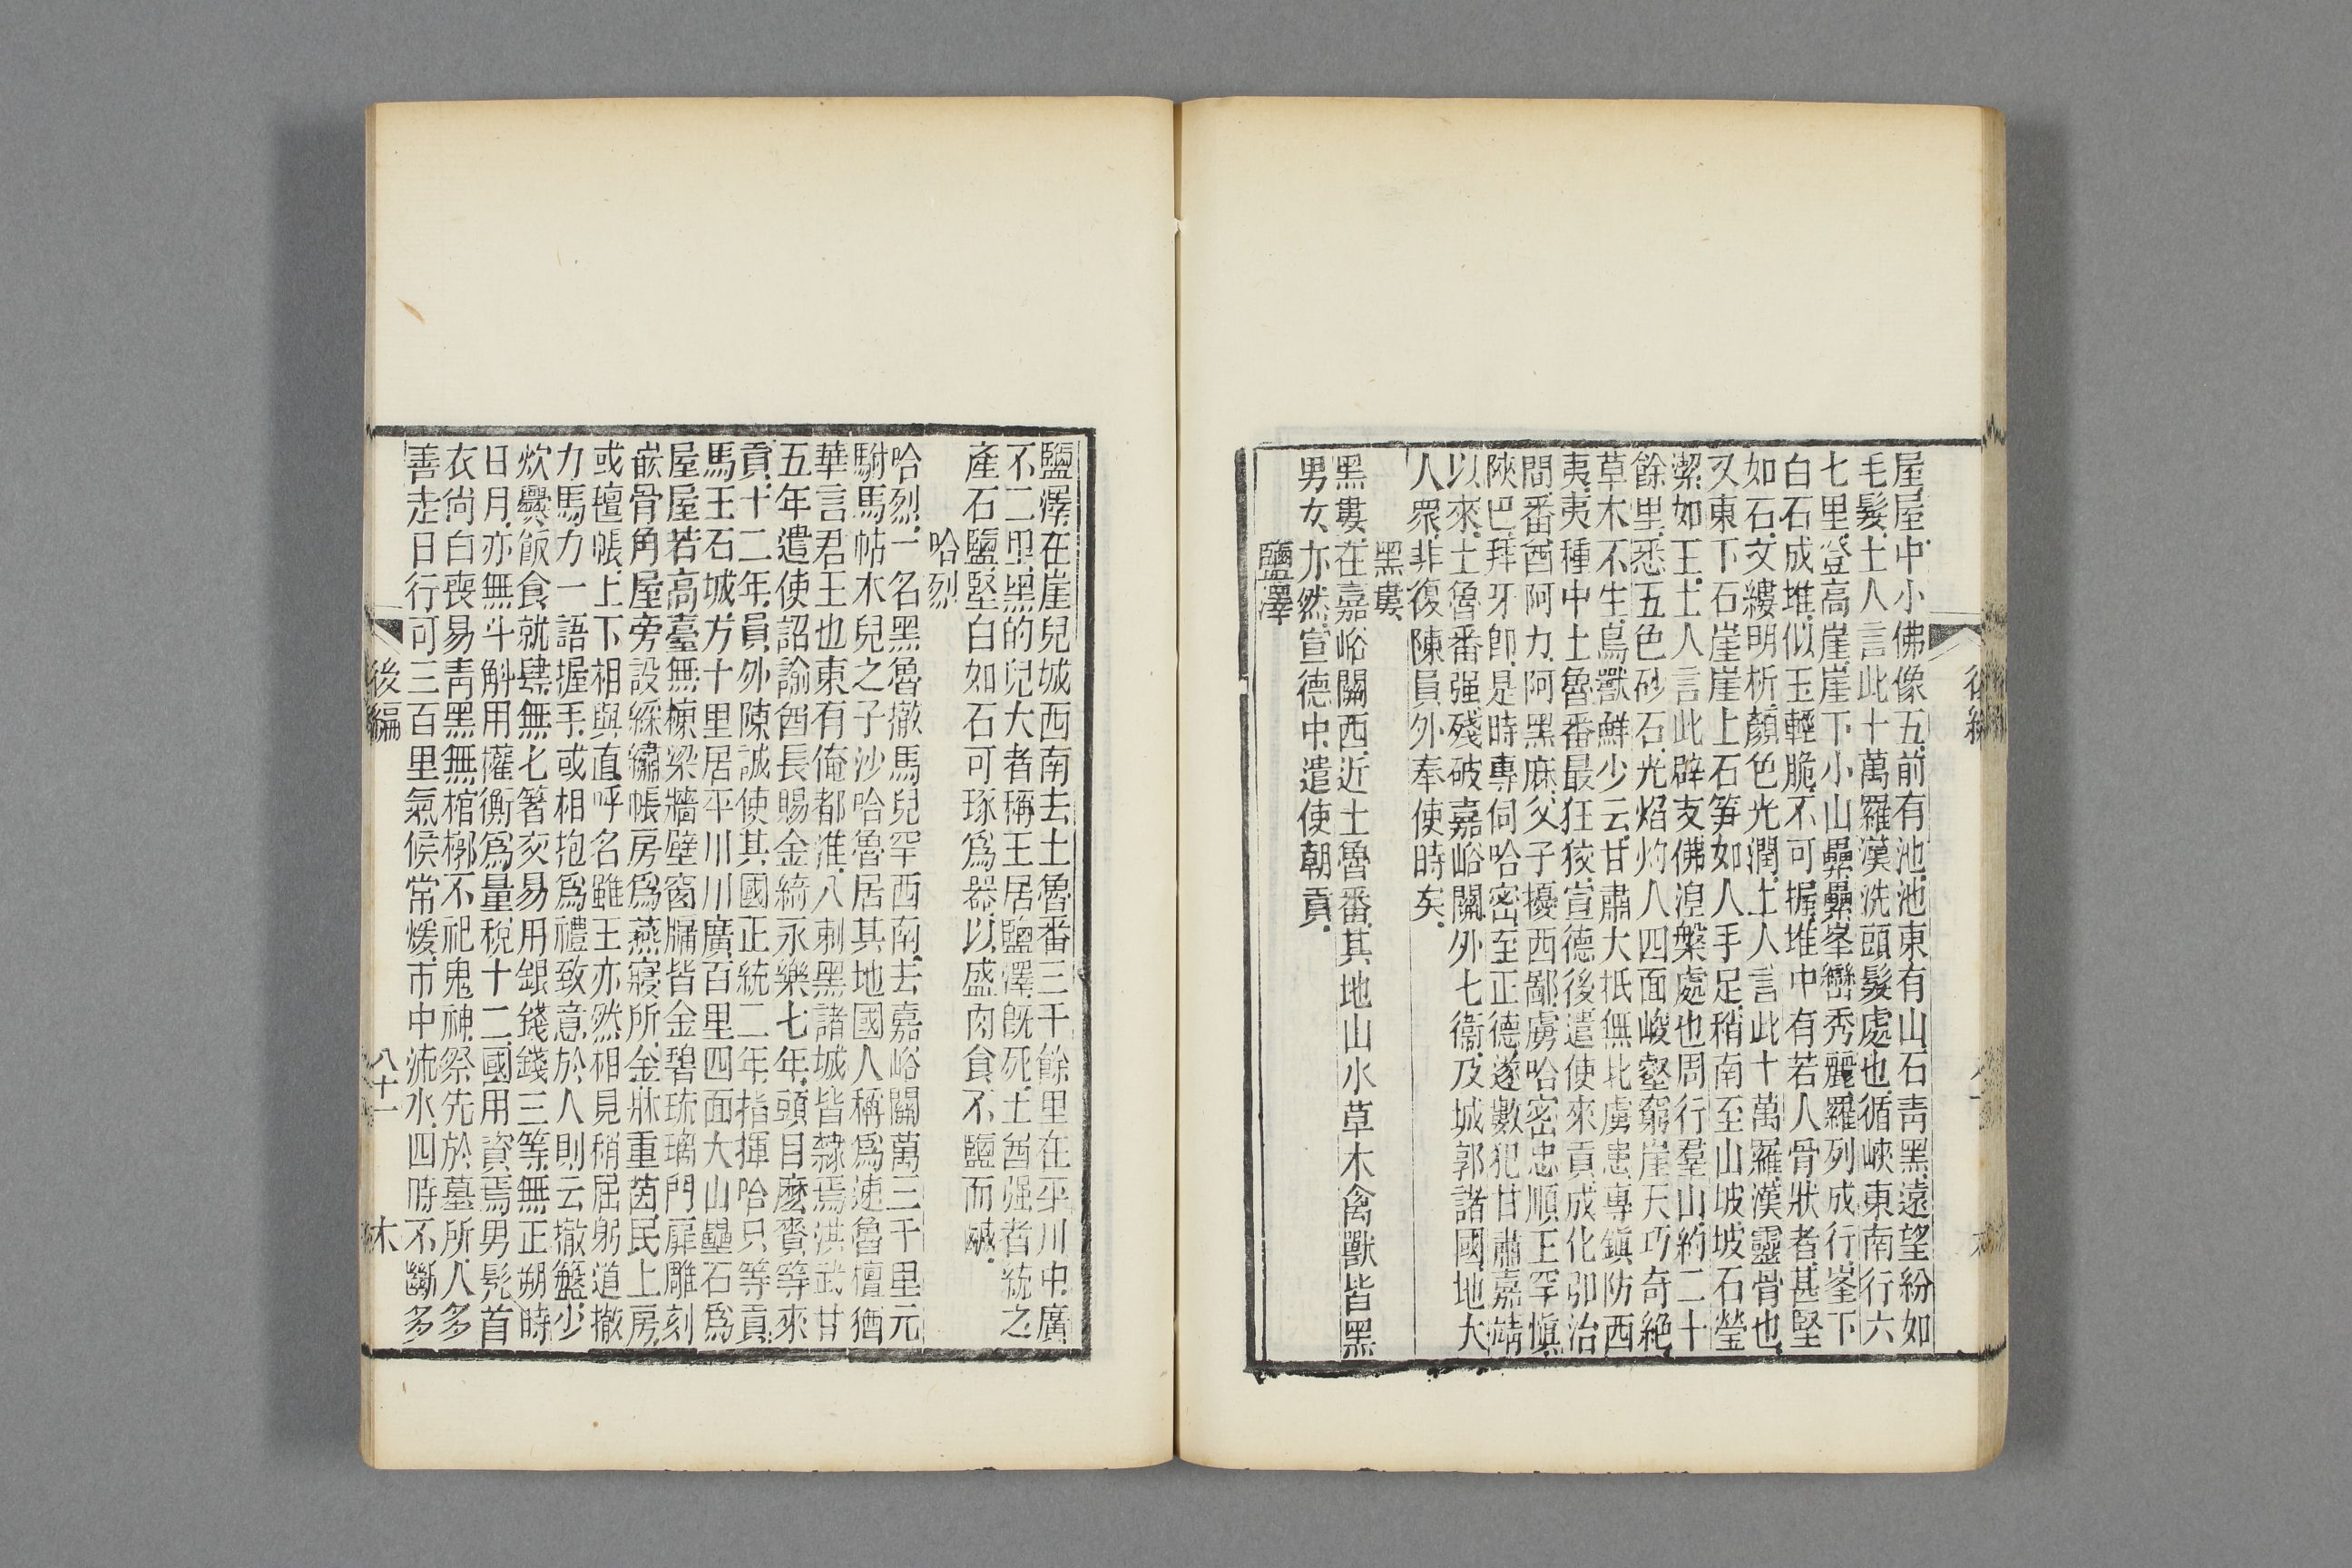 屋屋中小佛像五前有池池東有山石靑黑遠望紛如
毛髮土人言此十萬羅漢洗頭髮處也循峽東南行六
七里登高崖崖下小山纍纍峯巒秀麗羅列成行峯下
白石成堆似玉輕脆不可握堆中有若人骨狀者甚堅
如石文縷明析顏色光潤土人言此十萬羅漢靈骨也
又東下石崖崖上石笋如人手足稍南至山坡坡石瑩
潔如玉土人言此辟支佛涅槃處也周行羣山約二十
餘里悉五色砂石光焰灼人四面峻壑窮崖天巧奇絶
草木不生鳥獸鮮少云甘肅大抵無北虜患專鎮防西
夷夷種中土魯番最狂狡宣德後遣使來貢成化卽治
間番酋阿力阿黑麻父子擾西鄙虜哈密忠順王罕愼
陝巴拜牙卽是時專伺哈密至正德遂數犯甘肅嘉靖
以來土魯番强殘破嘉峪關外七衞及城郭諸國地大
人眾非復陳員外奉使時矣
黑婁
黑婁在嘉峪關西近土魯番其地山水草木禽獸皆黑
男女亦然宣德中遣使朝貢
鹽澤
鹽澤在崖兒城西南去土魯番三千餘里在平川中廣
不二里黑的兒大者稱王居鹽澤旣死土酋强者統之
產石鹽堅白如石可琢爲器以盛肉食不鹽而鹹
哈烈
哈烈一名黑魯撤馬兒罕西南去嘉峪關萬三千里元
駙馬帖木兒之子沙哈魯居其地國人稱爲速魯檀猶
華言君王也東有俺都淮八剌黑諸城皆隸焉洪武廿
五年遣使詔諭酋長賜金綺永樂七年頭目麽賫等來
貢十二年員外陳誠使其國正統二年指揮哈只等貢
馬王石城方十里居平川川廣百里四面大山壘石爲
屋屋若高臺無棟梁牆壁窗牖皆金碧琉璃門扉雕刻
嵌骨角屋旁設綵繡帳房爲燕寢所金牀重茵民上房
或氊帳上下相與直呼名雖王亦然相見稍屈躬道撤
力馬力一語握手或相抱爲禮致意於人則云撤籃少
炊爨飯食就肆無匕箸灰易用銀錢錢三等無正朔時
日月亦無斗斛用權衡爲量稅十二國用資焉男髡首
衣尙白喪易靑黑無棺槨不祀鬼神祭先於墓所人多
善走日行可三百里氣候常煖市中流水四時不斷多
後編
八十一
木